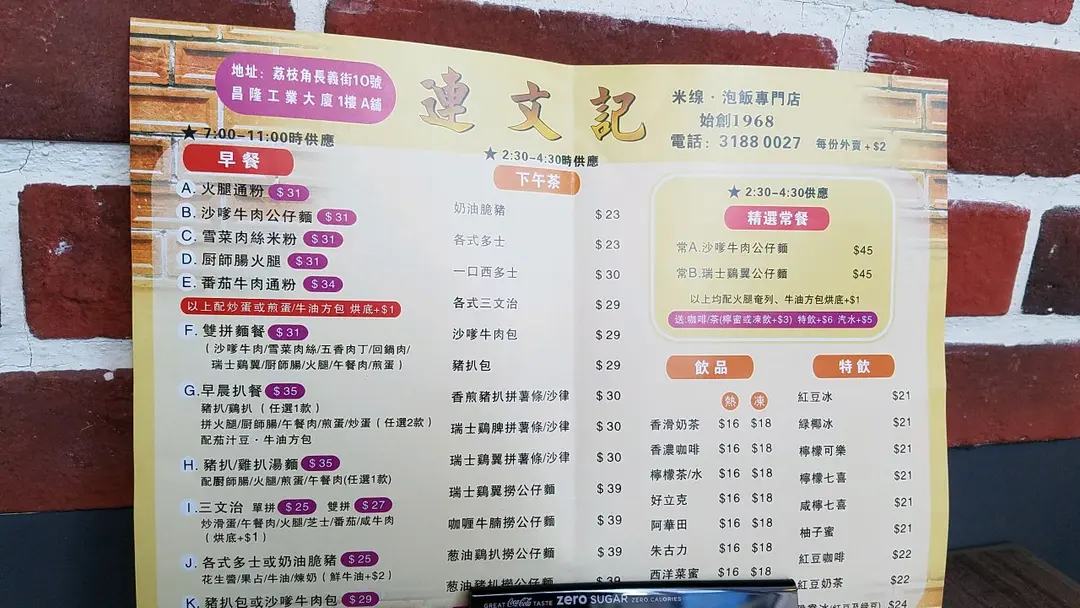 地址：荔枝角長義街10號
昌隆工業大廈1樓A舖
連文記
米線·泡飯專門店
始創1968
電話：3188 0027 每份外賣+$2
★ 7:00-11:00時供應
早餐
A. 火腿通粉 $31
B. 沙嗲牛肉公仔麵 $31
C. 雪菜肉絲米粉 $31
D. 厨師腸火腿 $31
E. 番茄牛肉通粉 $34
以上配炒蛋或煎蛋/牛油方包 烘底+$1
F. 雙拼麵餐 $31
（沙嗲牛肉/雪菜肉絲/五香肉丁/回鍋肉/
瑞士鷄翼/厨師腸/火腿/午餐肉/煎蛋）
G. 早晨扒餐 $35
豬扒/鷄扒（任選1款）
拼火腿/厨師腸/午餐肉/煎蛋/炒蛋（任選2款）
配茄汁豆·牛油方包
H. 豬扒/雞扒湯麵 $35
配厨師腸/火腿/煎蛋/午餐肉(任選1款)
I. 三文治 單拼 $25 雙拼 $27
炒滑蛋/午餐肉/火腿/芝士/番茄/咸牛肉
（烘底+$1）
J. 各式多士或奶油脆豬 $25
花生醬/果占/牛油/煉奶（鮮牛油+$2）
K. 豬扒包或沙嗲牛肉包 $29
★ 2:30-4:30時供應
下午茶
奶油脆豬 $23
各式多士 $23
一口西多士 $30
各式三文治 $29
沙嗲牛肉包 $29
豬扒包 $29
香煎豬扒拼薯條/沙律 $30
瑞士鷄脾拼薯條/沙律 $30
瑞士鷄翼拼薯條/沙律 $30
瑞士鷄翼撈公仔麵 $39
咖喱牛腩撈公仔麵 $39
葱油鷄扒撈公仔麵 $39
葱油豬扒撈公仔麵 $39
★ 2:30-4:30供應
精選常餐
常A.沙嗲牛肉公仔麵 $45
常B.瑞士鷄翼公仔麵 $45
以上均配火腿奄列、牛油方包烘底+$1
送:咖啡/茶(檸蜜或凍飲+$3) 特飲+$6 汽水+$5
飲品
熱 凍
香滑奶茶 $16 $18
香濃咖啡 $16 $18
檸檬茶/水 $16 $18
好立克 $16 $18
阿華田 $16 $18
朱古力 $16 $18
西洋菜蜜 $16 $18
特飲
紅豆冰 $21
綠椰冰 $21
檸檬可樂 $21
檸檬七喜 $21
咸檸七喜 $21
柚子蜜 $21
紅豆咖啡 $22
紅豆奶茶 $22
冰(紅豆及綠豆) $24
GREAT Coca-Cola TASTE zero SUGAR ZERO CALORIES